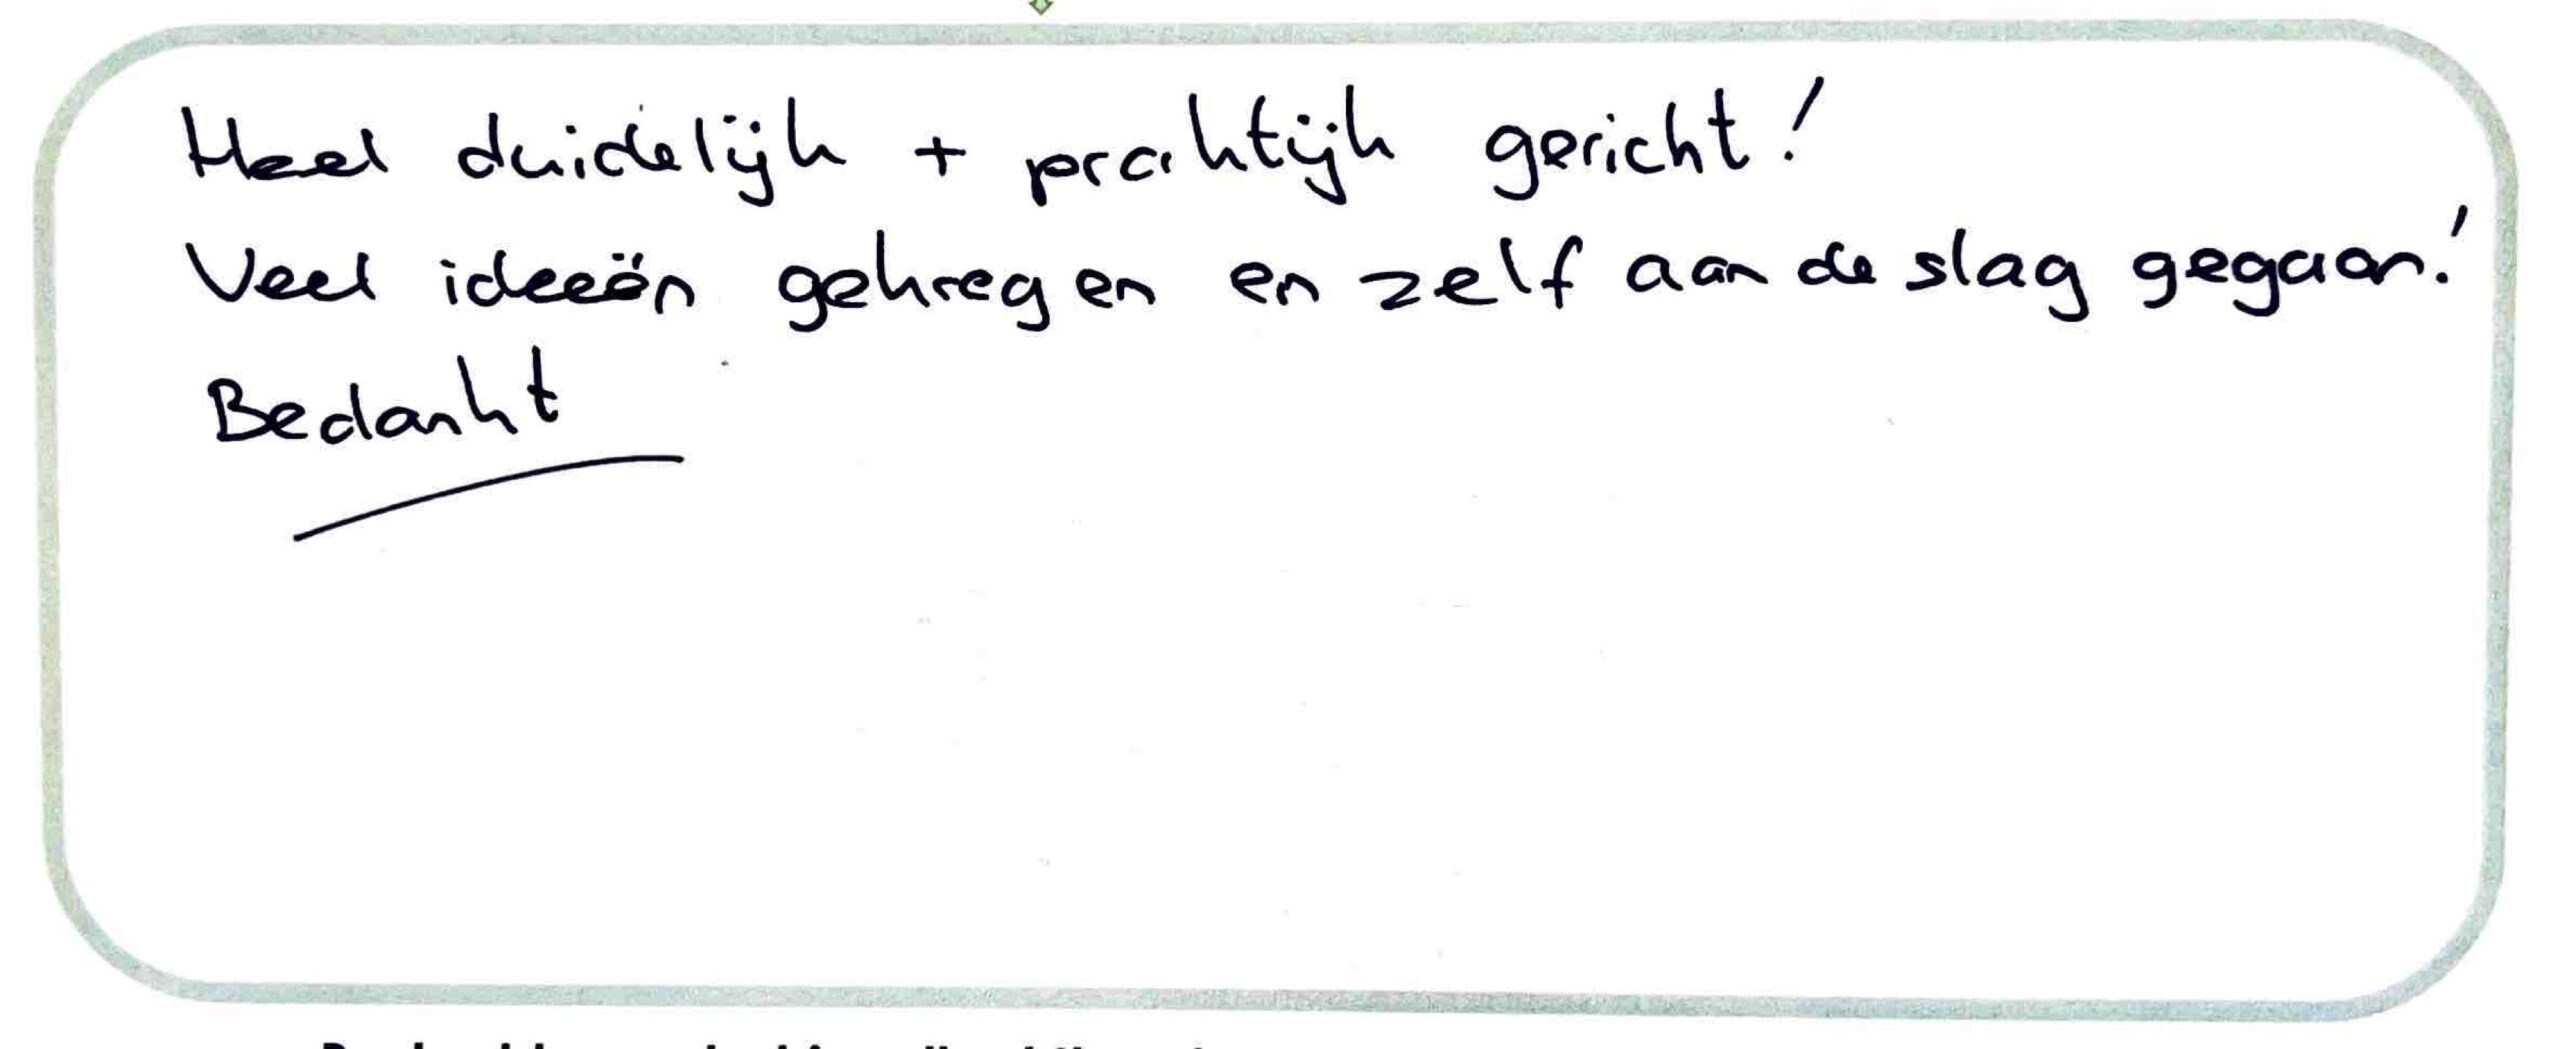 Heel duidelijk + praktijk gericht!
Veel ideeën gekregen en zelf aan de slag gegaan!
Bedankt